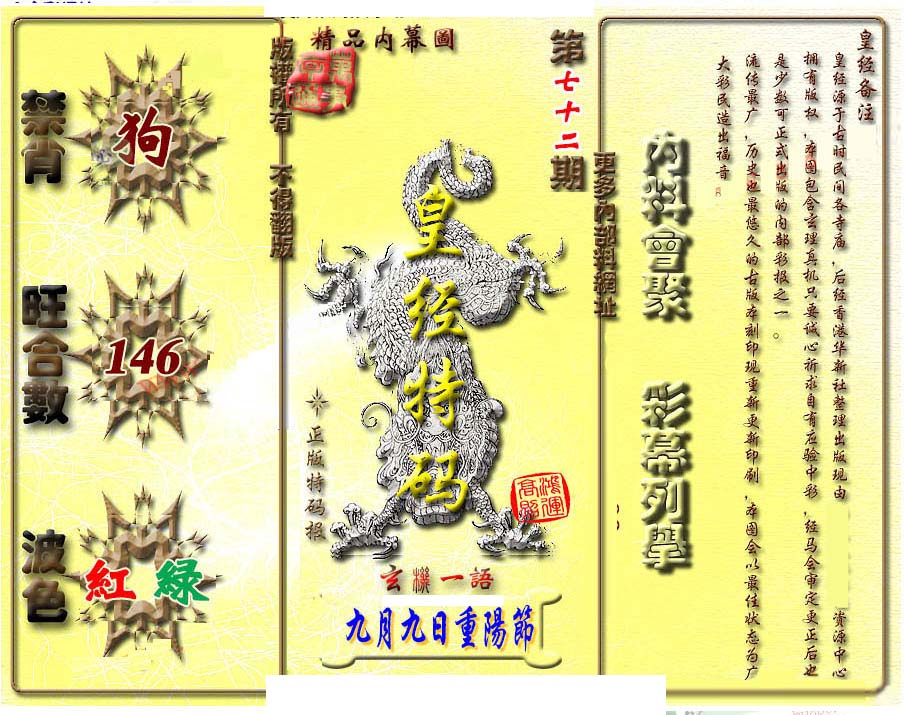 皇经备注
皇经源于古时民间各寺庙,后经香港华新社整理出版现由 资源中心
拥有版权,本图包含玄理真机只要诚心祈求自有应验中彩,经马会审定更正后也
是少数可正式出版的内部彩报之一。
流传最广,历史也最悠久的古版本刻印现重新更新印刷,本图会以最佳状态为广
大彩民造出福音
内料會聚
彩幕列舉
更多內部料網址
第七十二期
精品内幕圖
版權所有 不得翻版
皇经特码
正版特码报
鴻運高照
玄機一語
九月九日重陽節
禁肖
狗
旺合數
146
波色
紅 綠